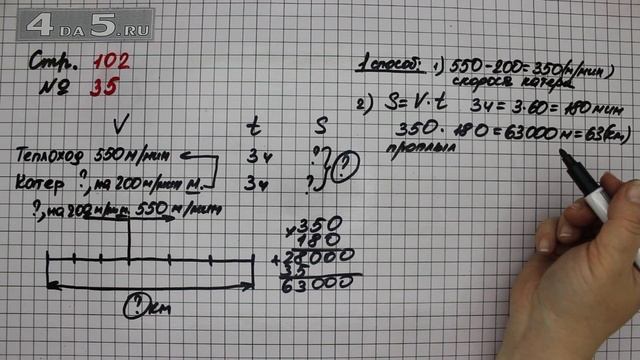 4 da 5.ru
Стр. 102
№ 35
V t S
Теплоход 550 м/мин 3ч ?
Катер ?, на 200 м/мин м. 3ч ?
?
?, на 200 м/мин 550 м/мин
? км
1 способ: 1) 550-200=350(м/мин)
скорость катера
2) S=V·t 3ч=3·60=180 мин
350·180=63000 м=63(км)
проплыл
×350
180
+28000
35
63000